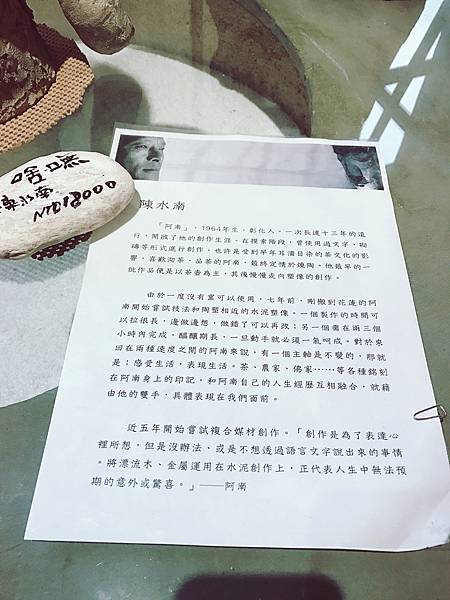 啥
陳水南
NT18000
陳水南
「阿南」,1964年生,彰化人。一次長達十三年的遠
行,開啟了他的創作生涯。在摸索階段,曾使用過文字、砌
磚等形式進行創作。也許是受到早年耳濡目染的茶文化的影
響,喜歡沏茶、品茶的阿南,最終定情於燒陶。他最早的一
批作品便是以茶壺為主,其後慢慢走向塑像的創作。
由於一度沒有窯可以使用,七年前,剛搬到花蓮的阿
南開始嘗試技法和陶塑相近的水泥塑像。一個製作的時間可
以拉很長,邊做邊想,做錯了可以再改;另一個需在兩三個
小時內完成,醞釀期長,一旦動手就必須一氣呵成。對於來
回在兩種速度之間的阿南來說,有一個主軸是不變的,那就
是:感受生活,表現生活。茶、農家、佛家……等各種銘刻
在阿南身上的印記,和阿南自己的人生經歷互相融合,就藉
由他的雙手,具體表現在我們面前。
近五年開始嘗試複合媒材創作。「創作是為了表達心
裡所想,但是沒辦法、或是不想透過語言文字說出來的事情
。將漂流木、金屬運用在水泥創作上,正代表人生中無法預
期的意外或驚喜。」——阿南